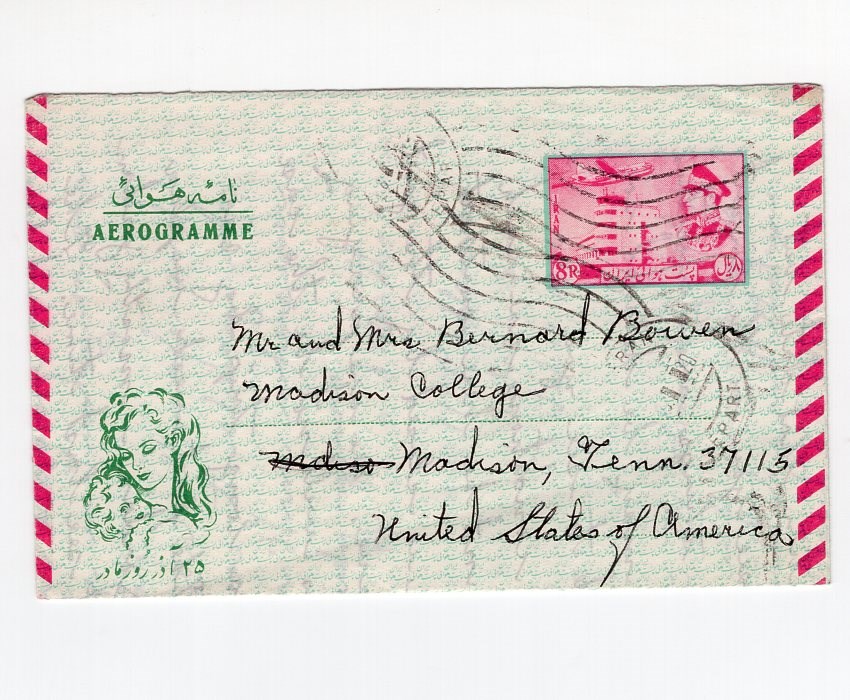 نامهٔ هوائی
AEROGRAMME
IRAN
8R
پست هوائی ایران
۸ ریال
Mr and Mrs. Bernard Bowen
Madison College
Madison, Tenn. 37115
United States of America
DEPART
۲۵ آذر روز مادر